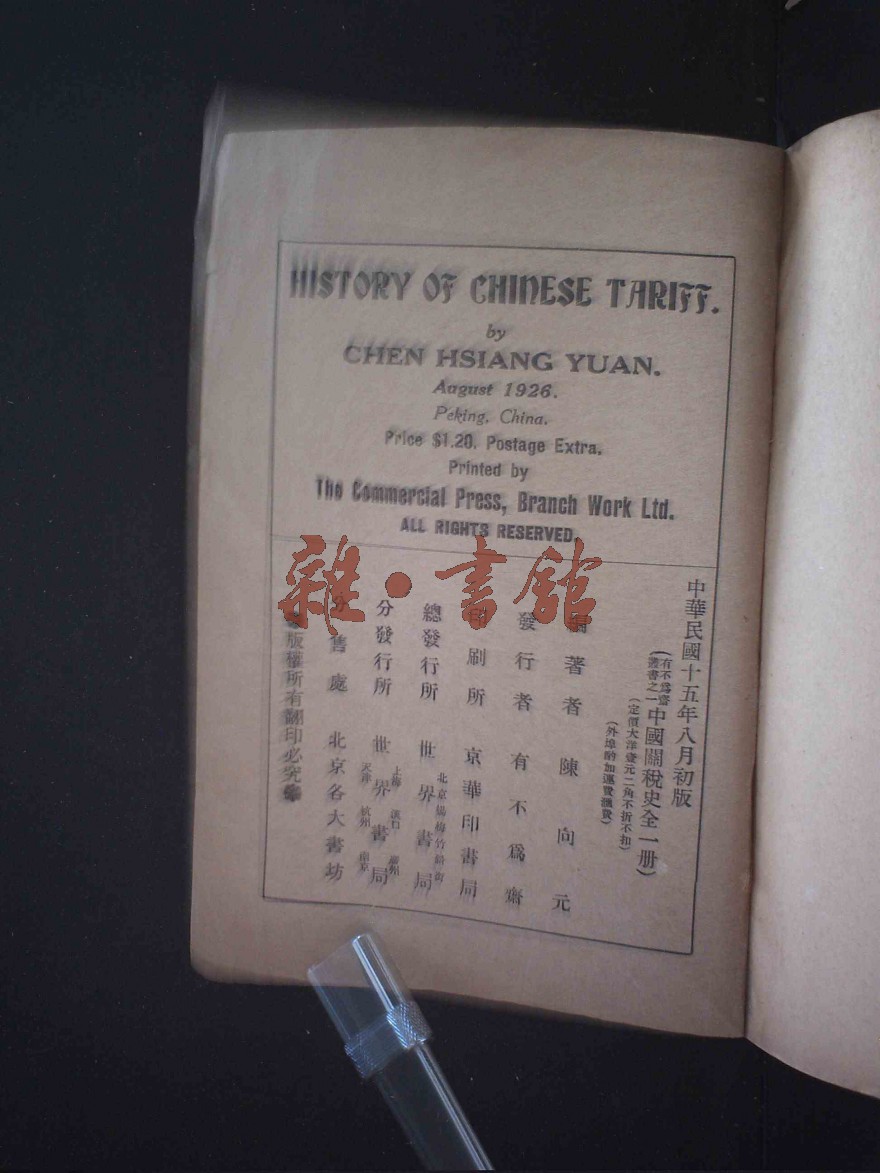 HISTORY OF CHINESE TARIFF.
by
CHEN HSIANG YUAN.
August 1926.
Peking, China.
Price $1.20. Postage Extra.
Printed by
The Commercial Press, Branch Work Ltd.
ALL RIGHTS RESERVED
雜·書館
中華民國十五年八月初版
(有不爲齋叢書之一 中國關稅史全一册)
(定價大洋壹元二角不折不扣)
(外埠酌加運費滙費)
編著者 陳向元
發行者 有不爲齋
印刷所 京華印書局
總發行所 北京楊梅竹斜街 世界書局
分發行所 上海 漢口 天津 杭州 南京 世界書局
分售處 北京各大書坊
版權所有翻印必究